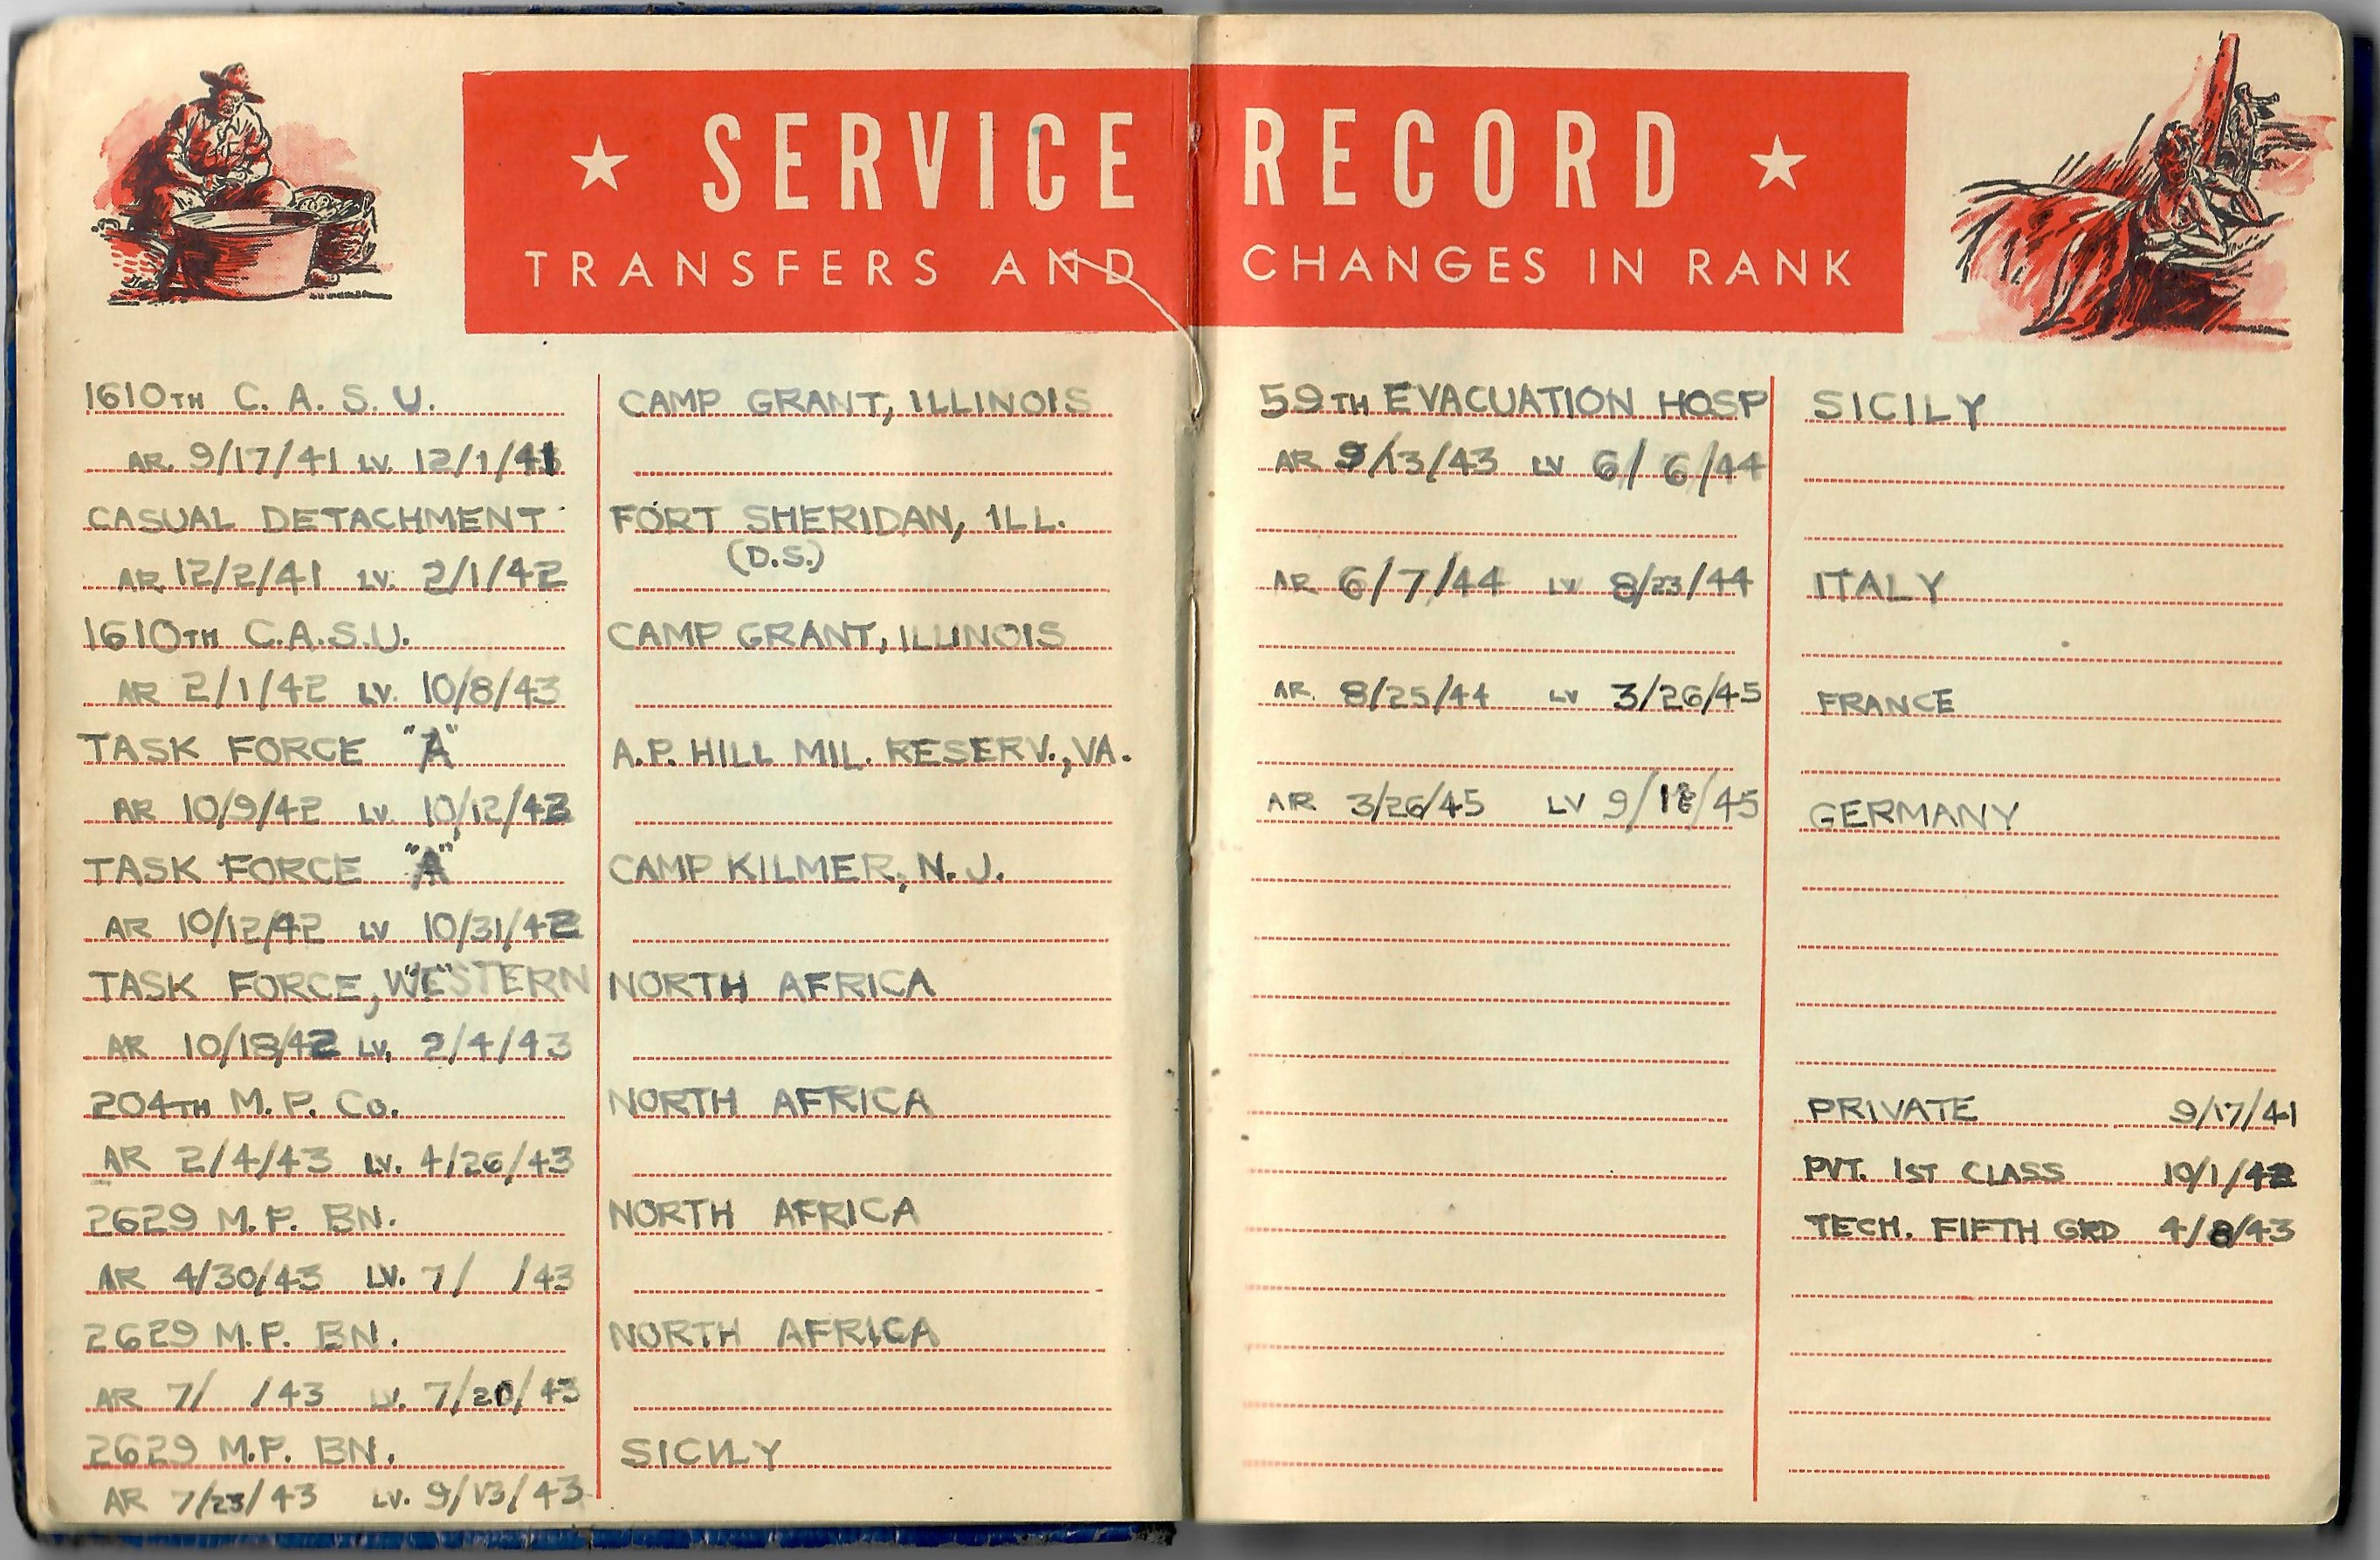 ★ SERVICE RECORD ★
TRANSFERS AND CHANGES IN RANK
1610TH C. A. S. U. CAMP GRANT, ILLINOIS
AR. 9/17/41 LV. 12/1/41
CASUAL DETACHMENT FORT SHERIDAN, ILL.
(D.S.)
AR 12/2/41 LV. 2/1/42
1610TH C.A.S.U. CAMP GRANT, ILLINOIS
AR 2/1/42 LV. 10/8/43
TASK FORCE "A" A.P. HILL MIL. RESERV., VA.
AR 10/9/42 LV. 10/12/42
TASK FORCE "A" CAMP KILMER, N. J.
AR 10/12/42 LV 10/31/42
TASK FORCE, WESTERN NORTH AFRICA
AR 10/18/42 LV, 2/4/43
204TH M. P. Co. NORTH AFRICA
AR 2/4/43 LV. 4/26/43
2629 M. P. BN. NORTH AFRICA
AR 4/30/43 LV. 7/ /43
2629 M.P. BN. NORTH AFRICA
AR 7/ /43 LV. 7/20/43
2629 M.P. BN. SICILY
AR 7/23/43 LV. 9/13/43
59TH EVACUATION HOSP SICILY
AR 9/13/43 LV 6/6/44
AR 6/7/44 LV 8/23/44 ITALY
AR. 8/25/44 LV 3/26/45 FRANCE
AR 3/26/45 LV 9/ /45 GERMANY
PRIVATE 9/17/41
PVT. 1ST CLASS 10/1/42
TECH. FIFTH GRD 4/8/43